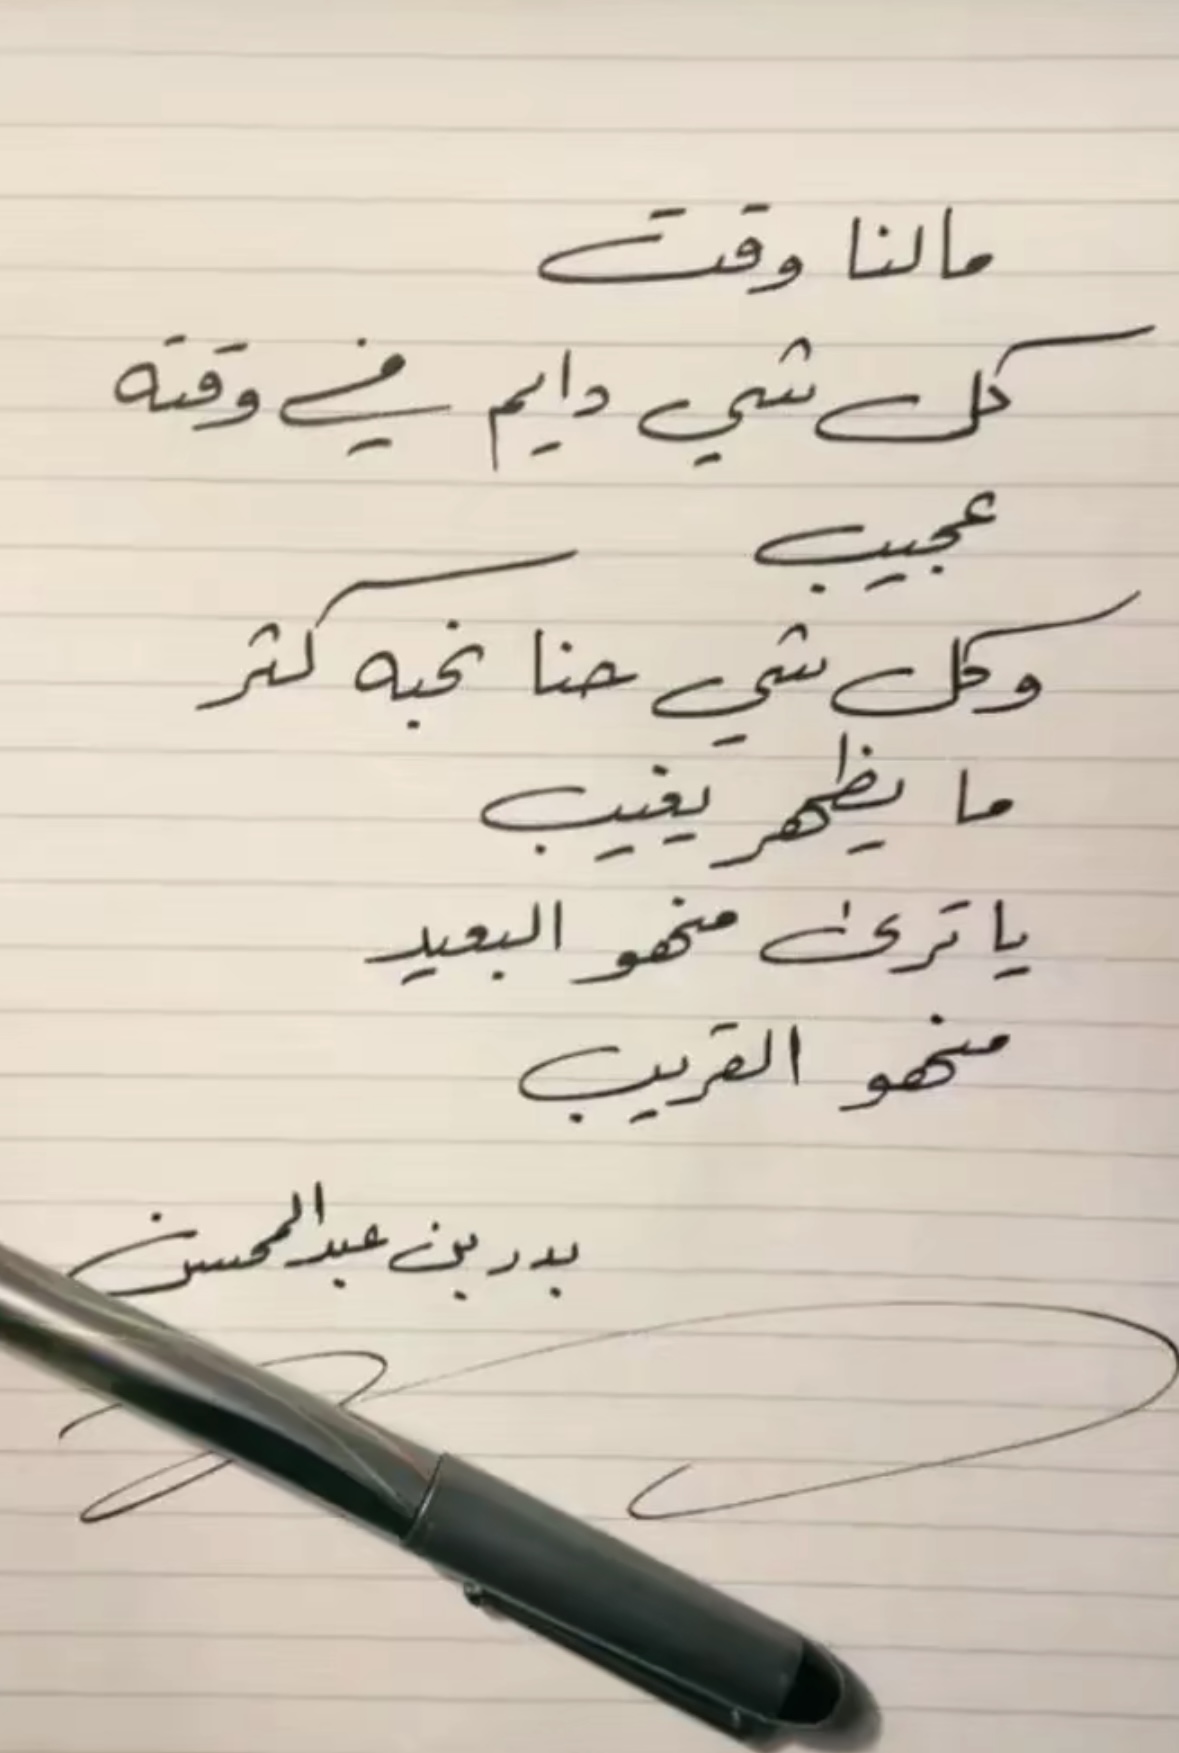 مالنا وقت
كل شي دايم في وقته
عجيب
وكل شي حنا نحبه كثر
ما يظهر يغيب
يا ترى منهو البعيد
منهو القريب
بدر بن عبدالمحسن